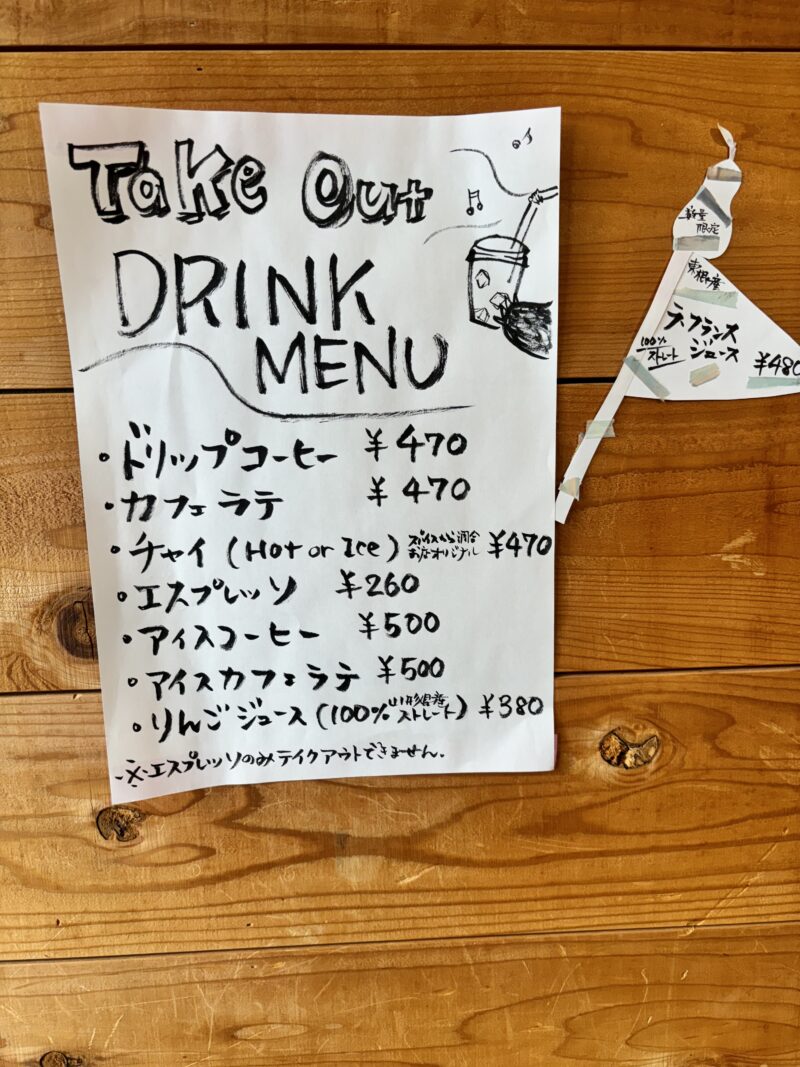 Take Out
DRINK
MENU
・ドリップコーヒー ¥470
・カフェラテ ¥470
・チャイ (Hot or Ice) スパイスから調合 ¥470
オリジナル
・エスプレッソ ¥260
・アイスコーヒー ¥500
・アイスカフェラテ ¥500
・りんごジュース (100% 山形県産 ストレート) ¥380
※エスプレッソのみテイクアウトできません.
数量
限定
東根産
ラ・フランス
100% ストレート
ジュース
¥480